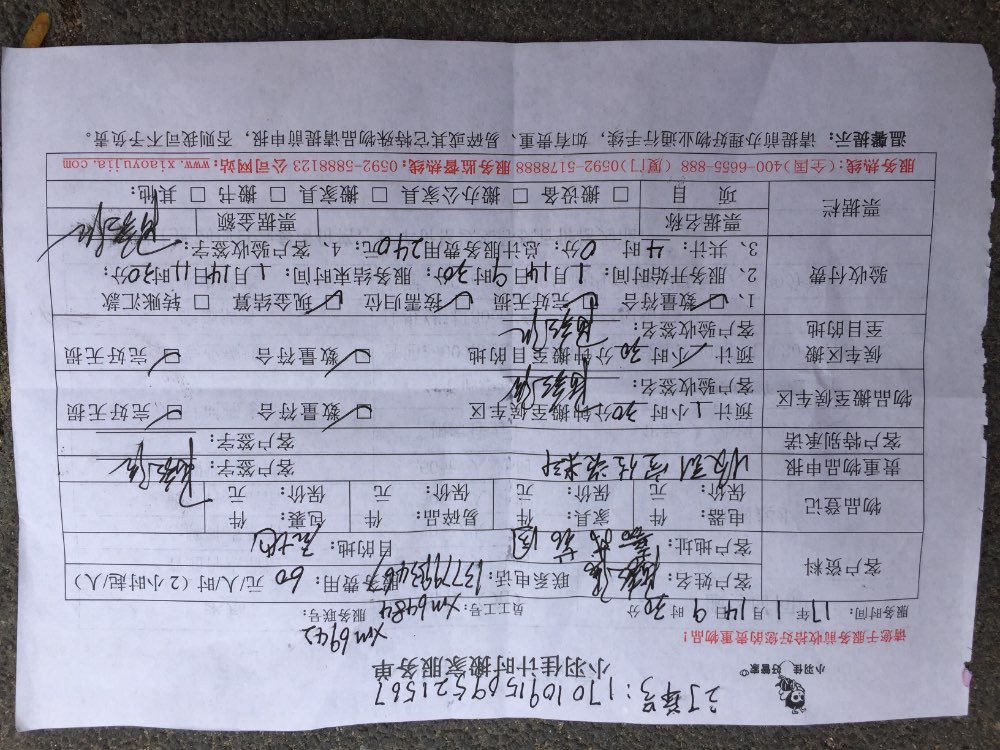 订单号：1701091569521567
小羽佳 好管家
小羽佳计时搬家服务单
请您于服务前收拾好您的贵重物品！
xm6942
服务时间： 17 年 1 月 14 日 9 时 30 分 员工工号： xm6484 服务联号：
客户资料 客户姓名： 联系电话： 服务费用： 60 元/人/时（2小时起/人）
客户地址： 目的地：
物品登记 电器： 件 家具： 件 易碎品： 件 包裹： 件
保价： 元 保价： 元 保价： 元 保价： 元
贵重物品申报 客户签字：
客户特别承诺 客户签字：
物品搬至候车区 预计 1 小时 30 分钟搬至候车区 数量符合 完好无损
客户验收签名：
候车区搬至目的地 预计 小时 30 分钟搬至目的地 数量符合 完好无损
客户验收签名：
验收付费 1、 数量符合 完好无损 按需归位 现金结算 转账汇款
2、服务开始时间： 1 月 14 日 9 时 30 分；服务结束时间： 1 月 14 日 11 时 30 分；
3、共计： 4 时 0 分；总计服务费用 240 元。4、客户验收签字：
票据栏 票据名称 票据金额
项 目 搬设备 搬办公家具 搬家具 搬书 其他：
服务热线：(全国)400-6655-888 (厦门)0592-5178888 服务监督热线：0592-5888123 公司网站：www.xiaoyujia.com
温馨提示：请提前办理好物业通行手续，如有贵重、易碎或其它特殊物品请提前申报，否则我司不予负责。